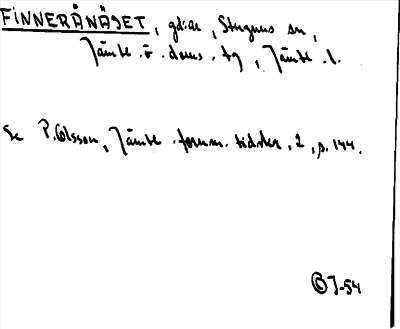 FINNERÅNÄSET, gd:ar, Stuguns sn,
Jämtl. ö. doms. tg, Jämtl. l.
Se P. Olsson, Jämtl. fornm. tidskr. 2, s. 144.
J-54